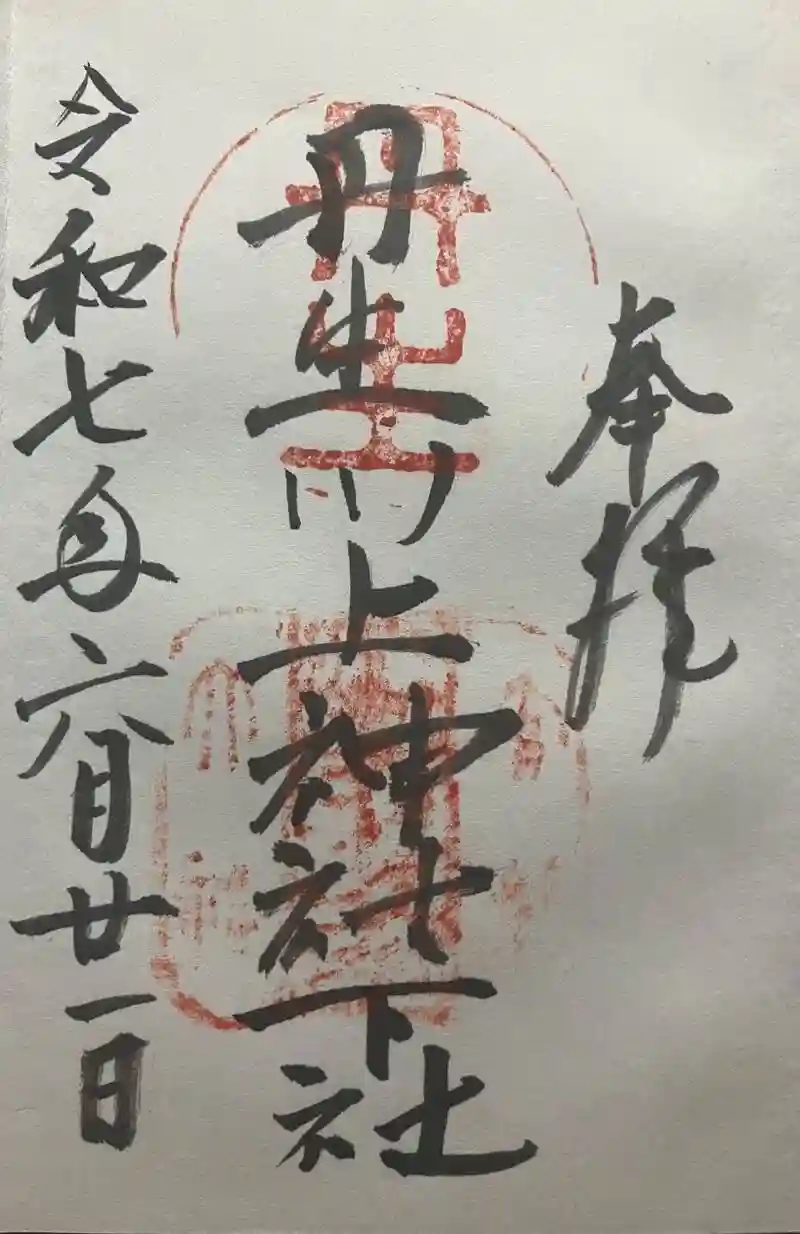 奉拝
丹生川上神社下社
令和七年六月廿一日